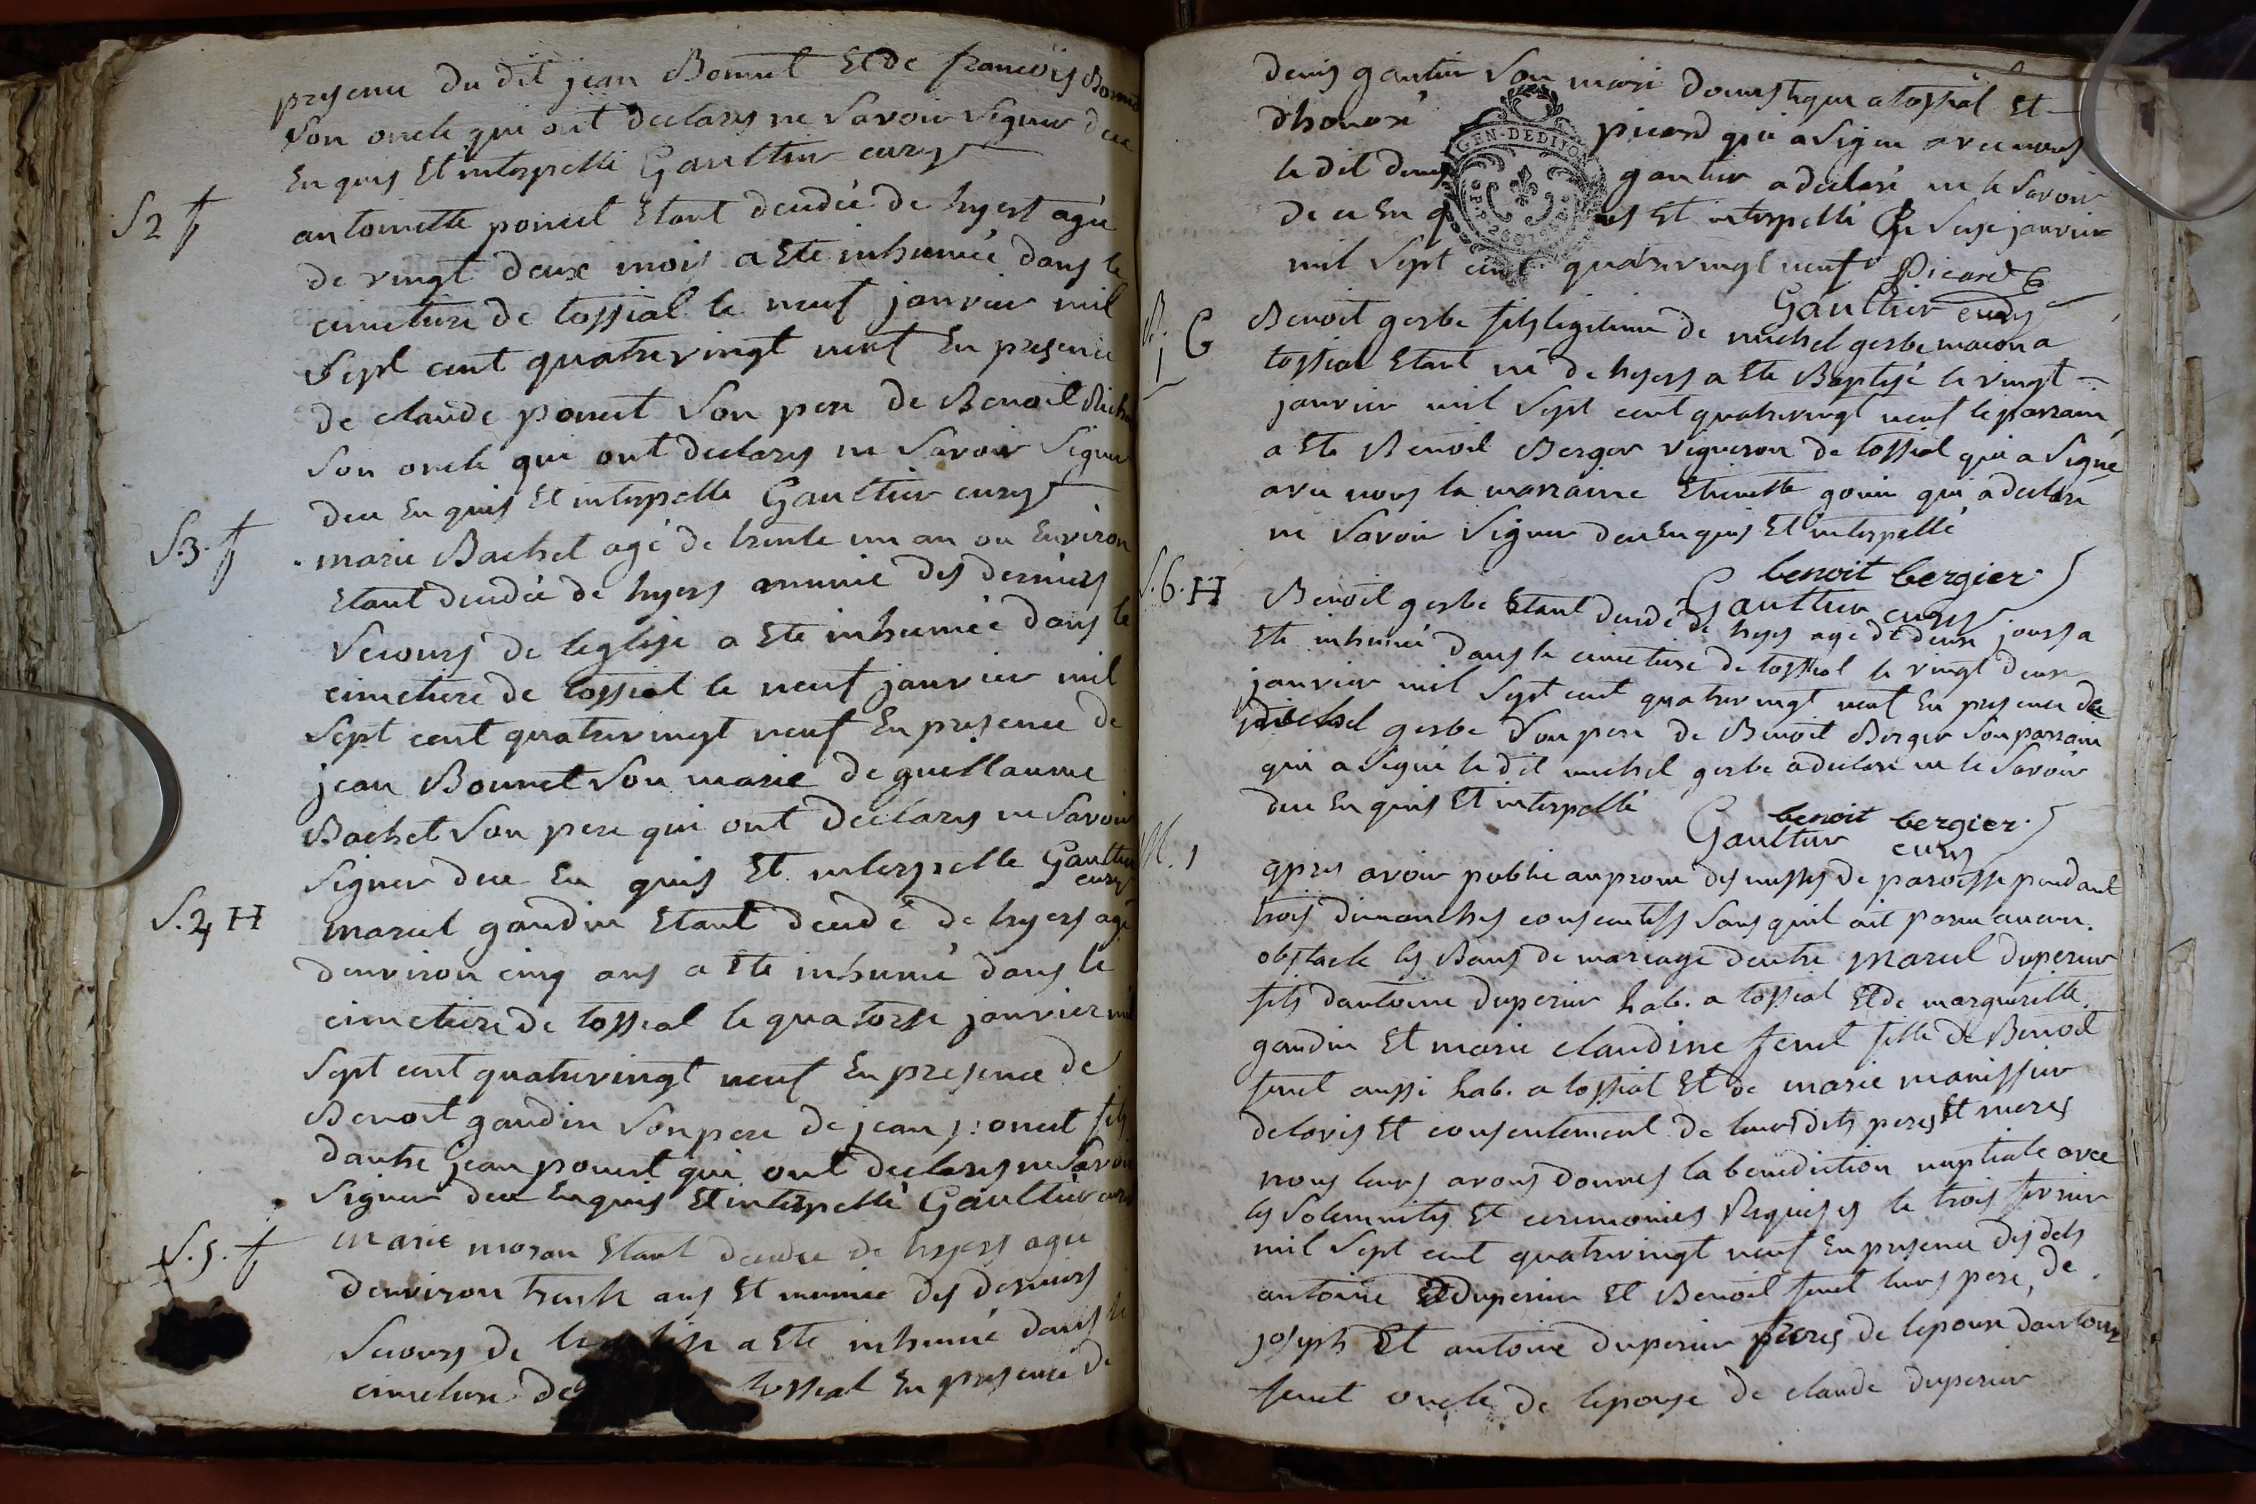 presence du dit jean Bonnet Et de francois Bonnet
son oncle qui ont declarés ne savoir signer deu
Enquis Et interpellé Gaultier curé
S 2 f
antoinette poncet Etant decedée de hyers agée
de vingt deux mois a Eté inhumée dans le
cimetiere de tossiat le neuf janvier mil
sept cent quatrevingt neuf En presence
de claude poncet son pere de Benoit
son oncle qui ont declarés ne savoir signer
deu Enquis Et interpellé Gaultier curé
S. 3. f
marie Bachet agé de trente un an ou Environ
Etant decedée de hyers munie des derniers
secours de leglise a Eté inhumée dans le
cimetiere de tossiat le neuf janvier mil
sept cent quatrevingt neuf En presence de
jean Bonnet son marie de guillaume
Bachet son pere qui ont declarés ne savoir
signer deu En quis Et interpellé Gaultier
curé
S. 4 H
marcel gaudin Etant decedé de hyers agé
denviron cinq ans a Eté inhumé dans le
cimetiere de tossiat le quatorse janvier mil
sept cent quatrevingt neuf En presence de
Benoit gaudin son pere de jean poncet fils
dautre jean poncet qui ont declarés ne savoir
signer deu Enquis Et interpellé Gaultier curé
S. 5. f
marie moran Etant decedée de hyers agée
denviron trente ans Et munie des derniers
secours de a Eté inhumée dans le
cimetiere de tossiat En presence de
denis gautier son mari domestique a tossiat Et
dhonoré picard qui a signé avec nous
le dit denis gautier a declaré ne le savoir
de ce En q is Et interpellé Ce sese janvier
mil sept cent quatrevingt neuf Picard
Gaultier curé
B. 1 G
Benoit gerbe fils legitime de michel gerbe macon a
tossiat Etant né de hyers a Eté Baptisé le vingt
janvier mil sept cent quatrevingt neuf le parrain
a Eté Benoit Berger vigneron de tossiat qui a signé
avec nous la marraine Etiennette gonin qui a declaré
ne savoir signer deu Enquis Et interpellé
benoit bergier
Gaultier curé
S. 6. H
Benoit gerbe Etant decedé de hyers agé de deux jours a
Eté inhumé dans le cimetiere de tossiat le vingt deux
janvier mil sept cent quatrevingt neuf En presence de
michel gerbe son pere de Benoit Berger son parrain
qui a signé le dit michel gerbe a declaré ne le savoir
deu Enquis Et interpellé
benoit bergier
Gaultier curé
M. 1
apres avoir publié au prone des messes de paroisse pendant
trois dimanches consecutifs sans quil ait paru aucun
obstacle les Bans de mariage dentre marcel duperier
fils dantoine duperier hab. a tossiat Et de margueritte
gaudin Et marie claudine feret fille de Benoit
feret aussi hab. a tossiat Et de marie manissier
de lavis Et consentement de leurs dits peres Et meres
nous leurs avons donnés la benediction nuptiale avec
les solemnités Et ceremonies Requises le trois fevrier
mil sept cent quatrevingt neuf En presence des dits
antoine duperier Et Benoit feret leurs pere, de
joseph Et antoine duperier freres de lepoux dantoine
feret oncle de lepouse de claude duperier